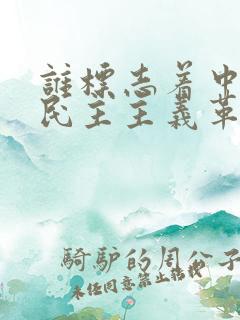 誰標志着中
民主主義革
騎驴的周公子
未任同意禁止转载